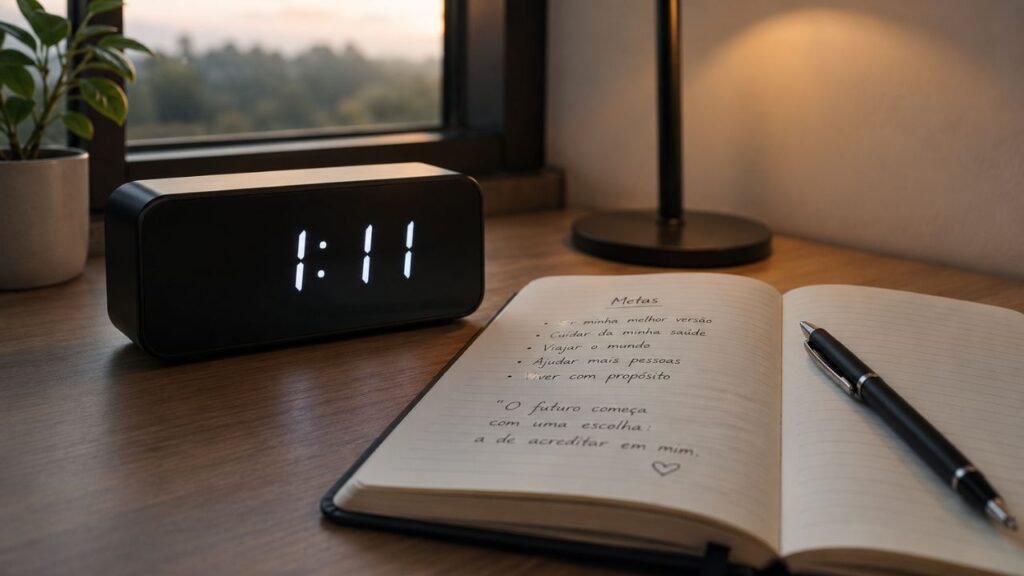 1:11
Metas
• minha melhor versão
• Cuidar da minha saúde
• Viajar o mundo
• Ajudar mais pessoas
• com propósito
"O futuro começa
com uma escolha:
a de acreditar em mim.